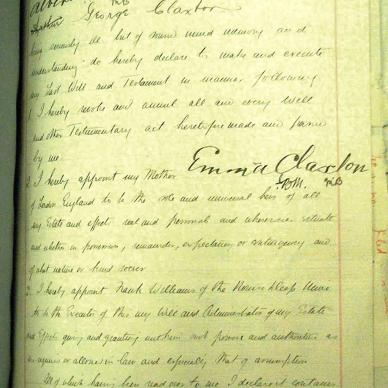 George Claxton
being sick but of sound mind memory and
understanding do hereby declare to make and execute
my Last Will and Testament in manner following
1 I hereby revoke and annul all and every will
and other Testamentary act heretofore made and passed
by me
2 I hereby appoint my Mother Emma Claxton
of London England to be the sole and universal heir of all
my Estate and effects real and personal and wheresoever situate
and whether in possession, remainder, expectancy or contingency and
of what nature or kind soever
3 I hereby appoint Frank Williams of the
to be the Executor of this my Will and Administrator of my Estate
and Effects giving and granting unto him such powers and authorities as
are required or allowed in Law and especially that of assumption
All of which having been read over to me I declare it contains